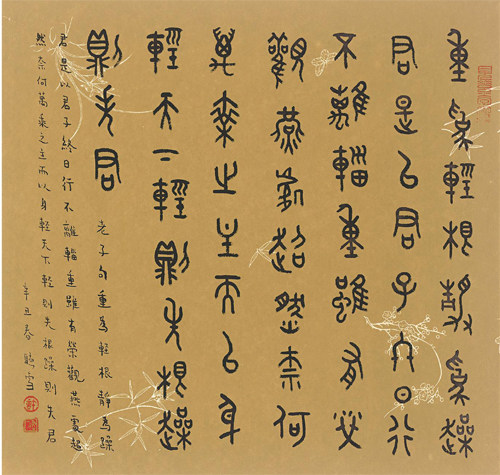 重為輕根靜為躁
君是以君子終日行
不離輜重雖有榮
觀燕處超然奈何
萬乘之主而以身
輕天下輕則失根躁
則失君
老子句重為輕根靜為躁
君是以君子終日行不離輜重雖有榮觀燕處超
然奈何萬乘之主而以身輕天下輕則失根躁則失君
辛丑春